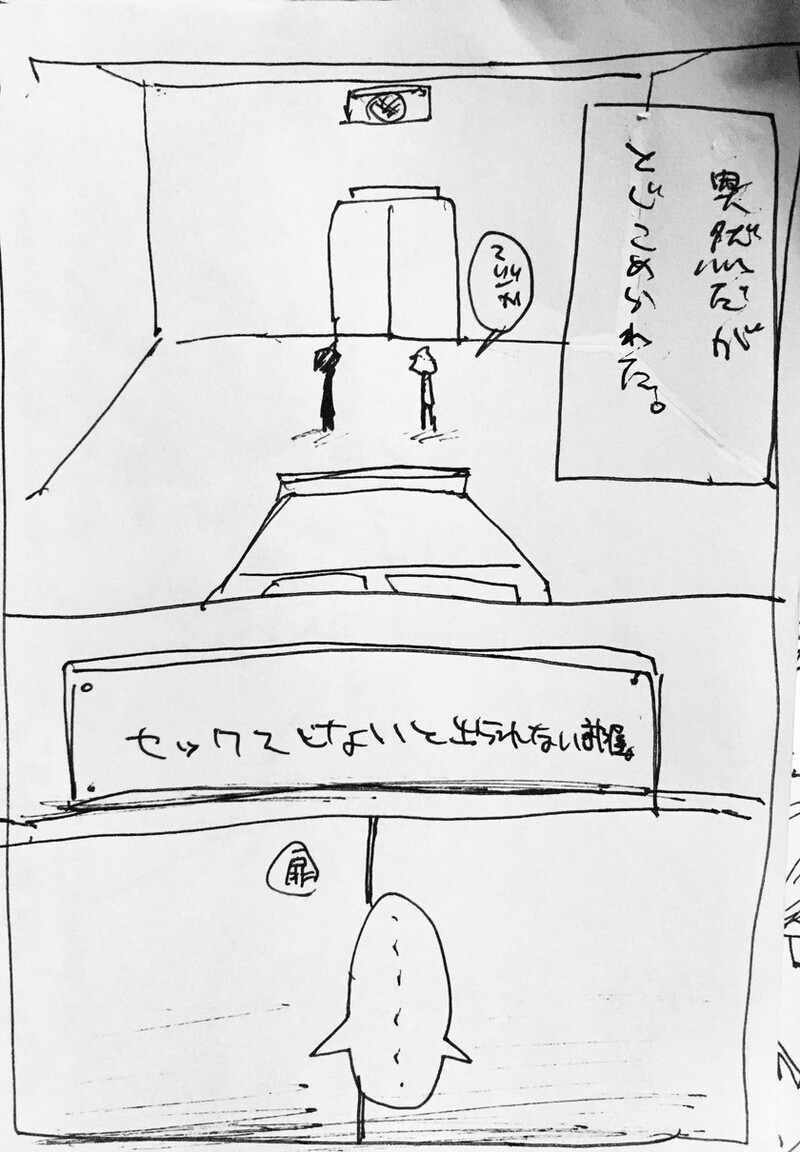 突然だが
とじこめられた。
セックスしないと出られない部屋。
扉
・・・・・・